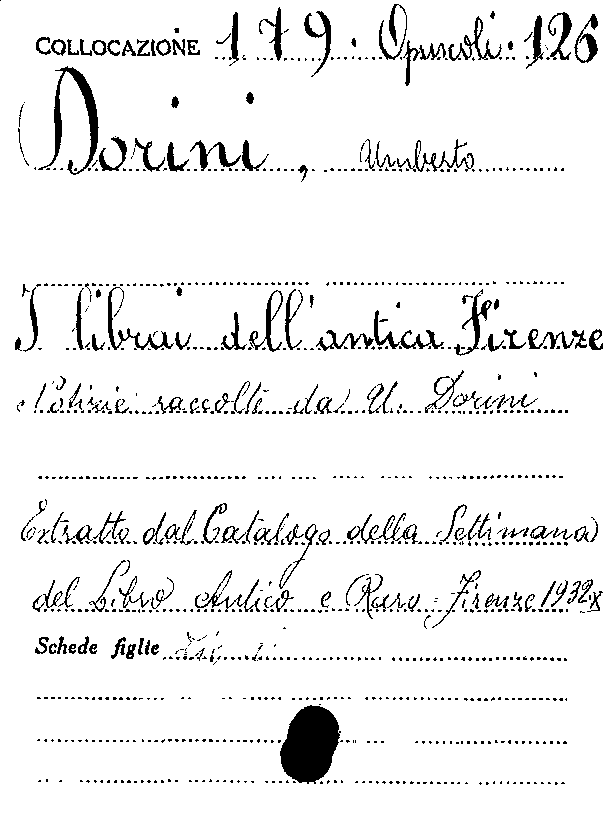 COLLOCAZIONE 179. Opuscoli. 126
Dorini, Umberto
I librai dell'antica Firenze
Notizie raccolte da U. Dorini
Estratto dal Catalogo della Settimana
del Libro Antico e Raro - Firenze 1932 X
Schede figlie